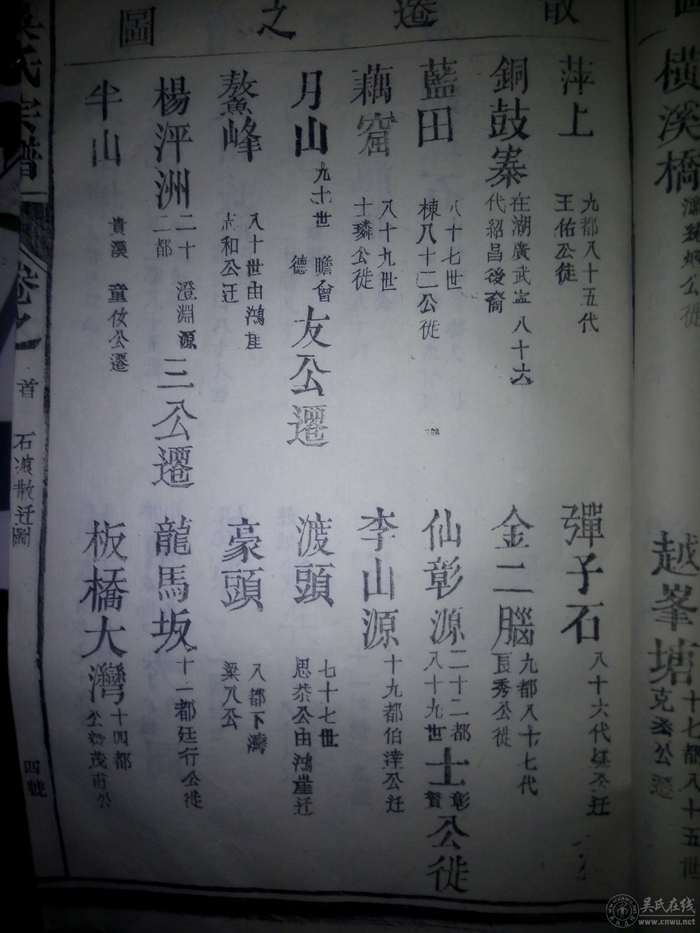 散遷之圖
橫溪橋
越峯塘 十七都八十五世
克孝公遷
萍上 九都八十五代
王佑公徙
彈子石 八十六代
公迁
銅鼓寨 在湖廣武寧八十六
代紹昌後裔
金二腦 九都八十七代
良秀公徙
藍田 八十七世
棟八十二公徙
仙彰源 二十二都
八十九世 士彰賢公徙
藕窟 八十九世
士璘公徙
李山源 十九都伯達公迁
月山 九十世 瞻曾德友公遷
渡頭 七十七世
思恭公由鴻崖迁
鰲峰 八十世由鴻崖
志和公迁
豪頭 八都下灣
梁八公
楊泙洲 二十二都 澄淵源三公遷
龍馬坂 十一都廷行公徙
半山 貴溪 童攸公遷
板橋大灣 十四都
吳氏宗譜
卷之首
石濵散迁圖
四號
吳氏在线
www.cnwu.net